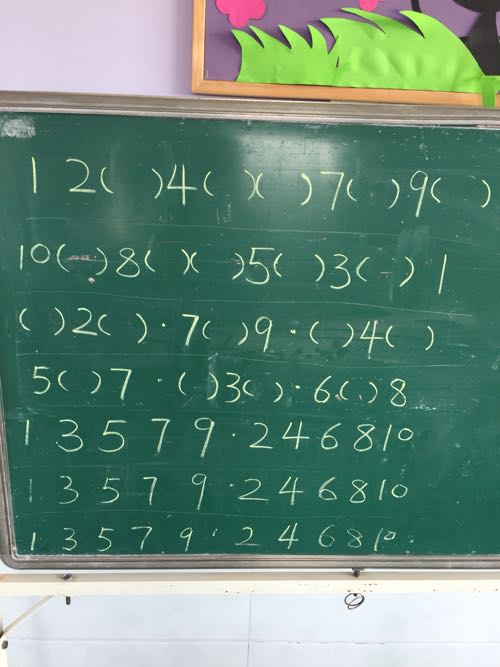 1 2( )4( )( )7( )9( )
10( )8( )( )5( )3( )1
( )2( )·7( )9·( )4( )
5( )7·( )3( )·6( )8
1 3 5 7 9·2 4 6 8 10
1 3 5 7 9·2 4 6 8 10
1 3 5 7 9·2 4 6 8 10